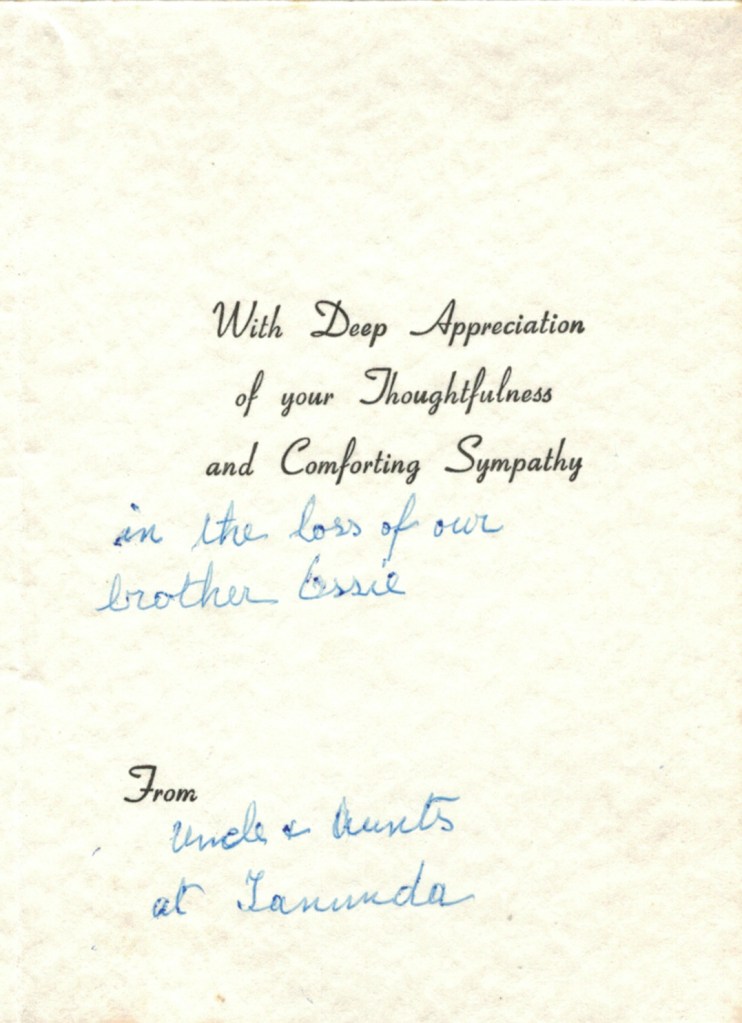 With Deep Appreciation
of your Thoughtfulness
and Comforting Sympathy
in the loss of our
brother Ossie
From
Uncle & Aunts
at Tanunda